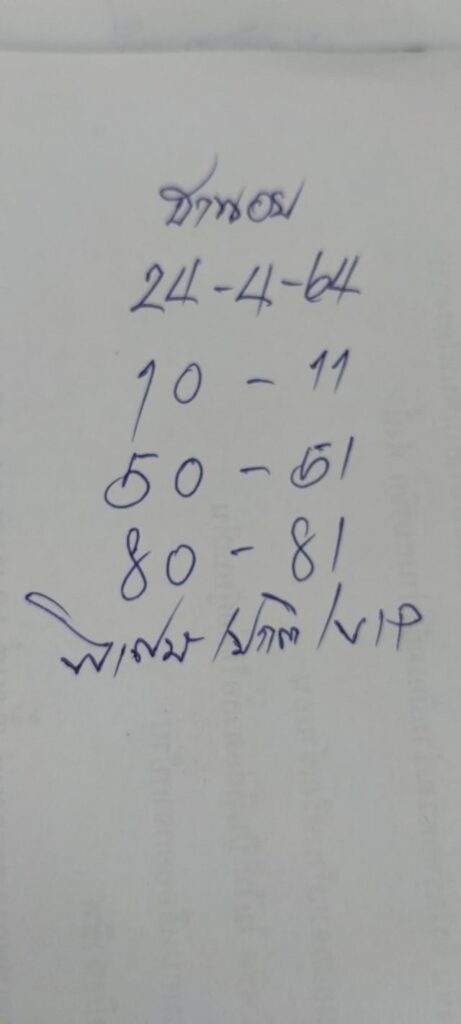 ฮานอย
24-4-64
10 - 11
50 - 51
80 - 81
พิเศษ/ปกติ/VIP